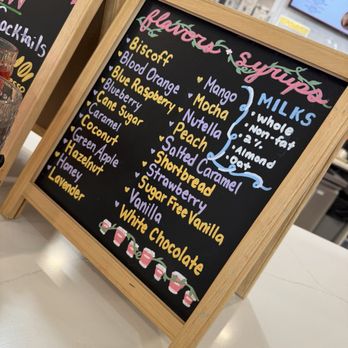 ocktails
flavors & Syrups
Biscoff
Blood Orange
Blue Raspberry
Blueberry
Cane Sugar
Caramel
Coconut
Green Apple
Hazelnut
Honey
Lavender
Mango
Mocha
Nutella
Peach
Salted Caramel
Shortbread
Strawberry
Sugar Free Vanilla
Vanilla
White Chocolate
MILKS
whole
Non-fat
2%
Almond
Oat